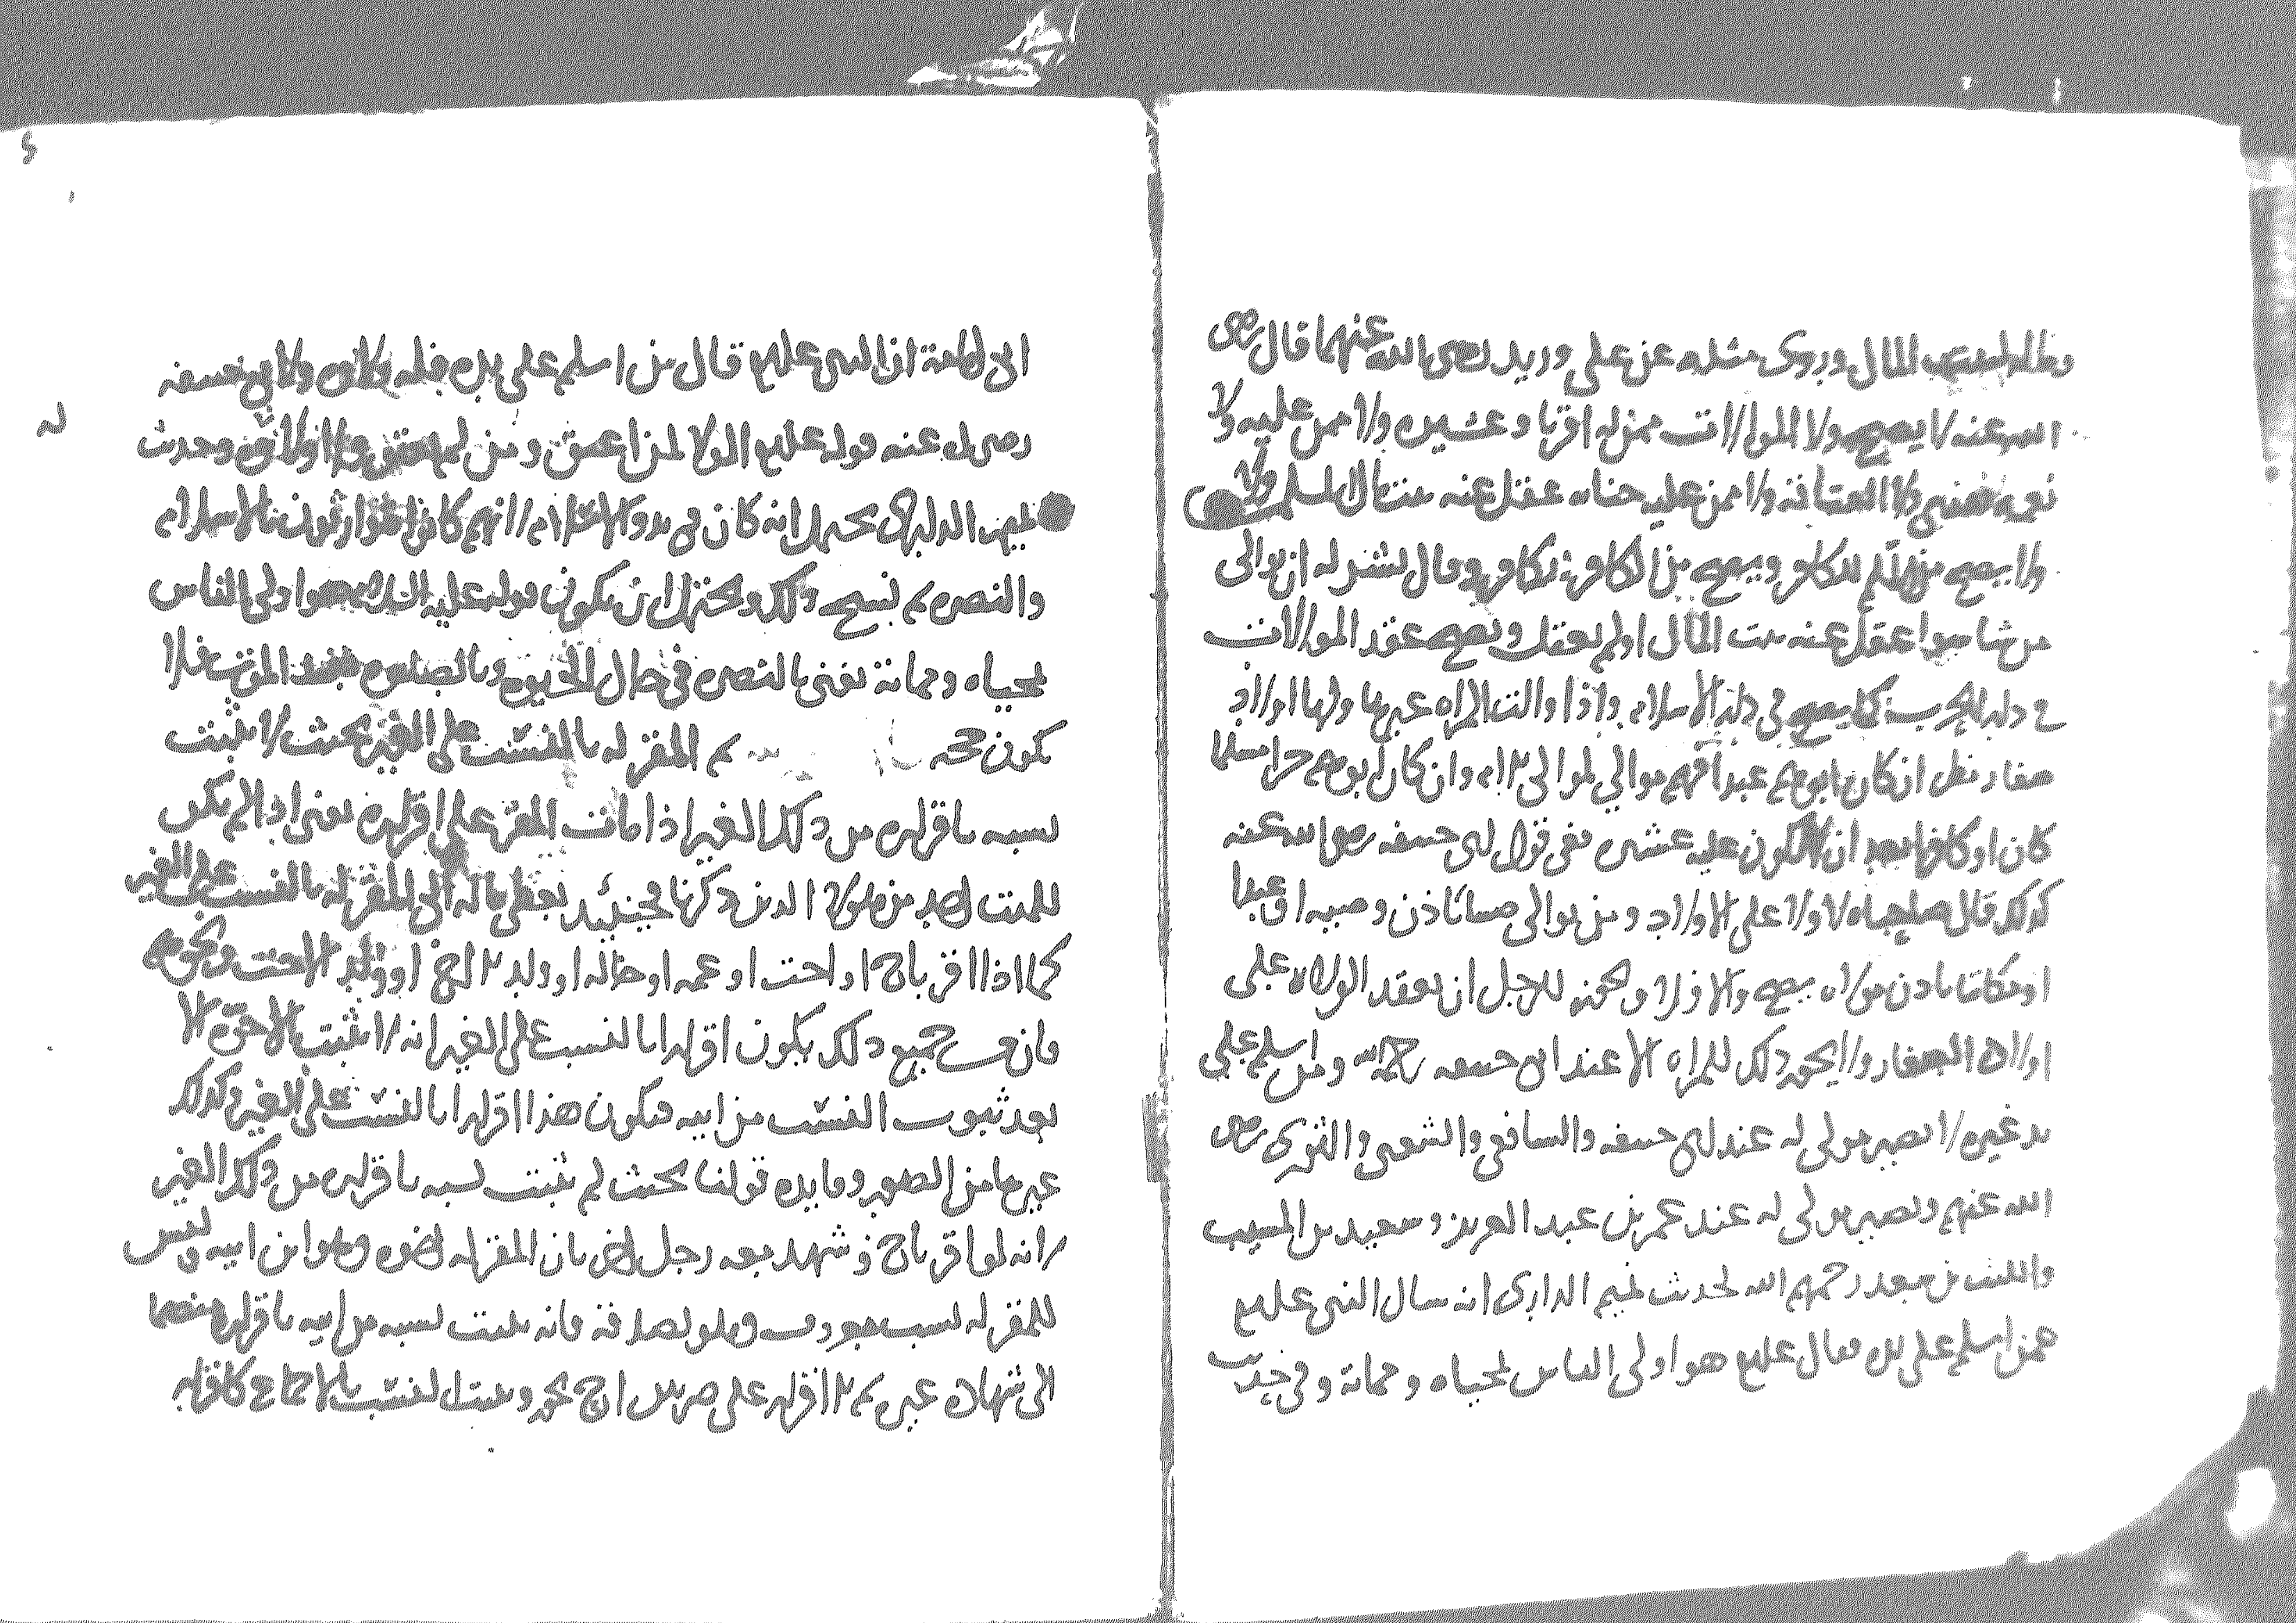 المال وروى مثله عن علي وزيد رضى الله عنهما قال رضى
الله عنه لا يصح ولا الموالات ممن له اقربا وعشيره ولا ممن عليه ولا
ولا العتاقة ولا ممن عليه عقل عنه بيت مال المسلم ولا
ولا يصح من المسلم للكافر ويصح من الكافر لكافر وقال بشر له ان يوالى
من شا سوا عقل عنه بيت المال اولم يعقل ويصح عقد الموالات
في دار الحرب كما يصح في دار الاسلام واذا والت المراه غيرها ولها اولاد
صغار نظر ان كان ابوهم عبدا فهم موالي لموالى الام وان كان ابوهم حرا مسلما
كان او كافرا بعد ان لا يكون عليه عشره ففى قول ابى حنيفه رضى الله عنه
كذلك قال صاحباه لا ولا على الاولاد ومن يوالى صبيا باذن وصيه او عبدا
او مكاتبا باذن مولاه يصح والا فلا ويجوز للرجل ان يعقد الولاء على
اولاده الصغار ولا يجوز ذلك للمراه الا عند ابى حنيفه رحمه الله ومن اسلم على
يد غيره لا يصير مولى له عند ابى حنيفه والشافعى والشعبى والثورى رضى
الله عنهم ويصير مولى له عند عمر بن عبد العزيز وسعيد بن المسيب
والليث بن سعد رحمهم الله لحديث تميم الدارى انه سال النبى عليه
عمن اسلم على يده فقال عليه هو اولى الناس لمحياه ومماته وفى حديث
ابى امامة ان النبى عليه قال من اسلم على يده فله ولاوه ولابى حنيفه
رضى الله عنه قوله عليه الولا لمن اعتق ومن لم يعتق وحديث
تميم الدارى يحتمل انه كان فى بدو الاسلام لانهم كانوا يتوارثون بالاسلام
والنصره ثم نسخ ذلك ويحتمل ان يكون قوله عليه السلام هو اولى الناس
لمحياه ومماته يعنى بالنصره فى حال الحيوه وبالصلوه بعد الموت فلا
يكون حجه ثم المقر له بالنسب على الغير بحيث لا يثبت
نسبه باقراره من ذلك الغير اذا مات المقر على اقراره يعنى اذا لم يكن
للميت احد من هولا الذين ذكرنا فحينئذ يعطى ماله الى المقر له بالنسب على الغير
كما اذا اقر باخ او اخت او عمه او خاله او ولد الاخ او ولد الاخت ونحوهم
فان في جميع ذلك يكون اقرارا بالنسب على الغير لانه لا يثبت الاخوة الا
بعد ثبوت النسب من ابيه فيكون هذا اقرارا بالنسب على الغير وكذلك
غيرها من الصور وفايده قولنا بحيث لم يثبت نسبه باقراره من ذلك الغير
لانه لو اقر باخ وشهد معه رجل اخر بان المقر له اخوه وهو ابن ابيه وليس
للمقر له نسب معروف فانه يثبت نسبه من ابيه باقراره منضما
الى شهاده غيره ثم الاقرار على ضربين يجوز ويثبت النسب بالاجماع كاقرار